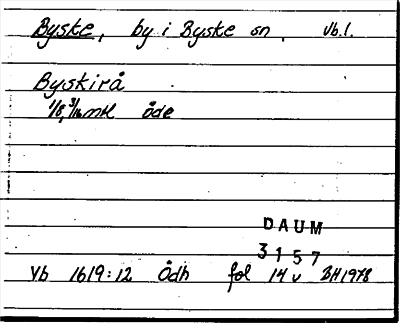 Byske, by i Byske sn. Vb.l.
Byskirå
1/8, 3/16 mtl öde
DAUM
3157
Vb 1619:12 Ödh fol 14 v BH1978